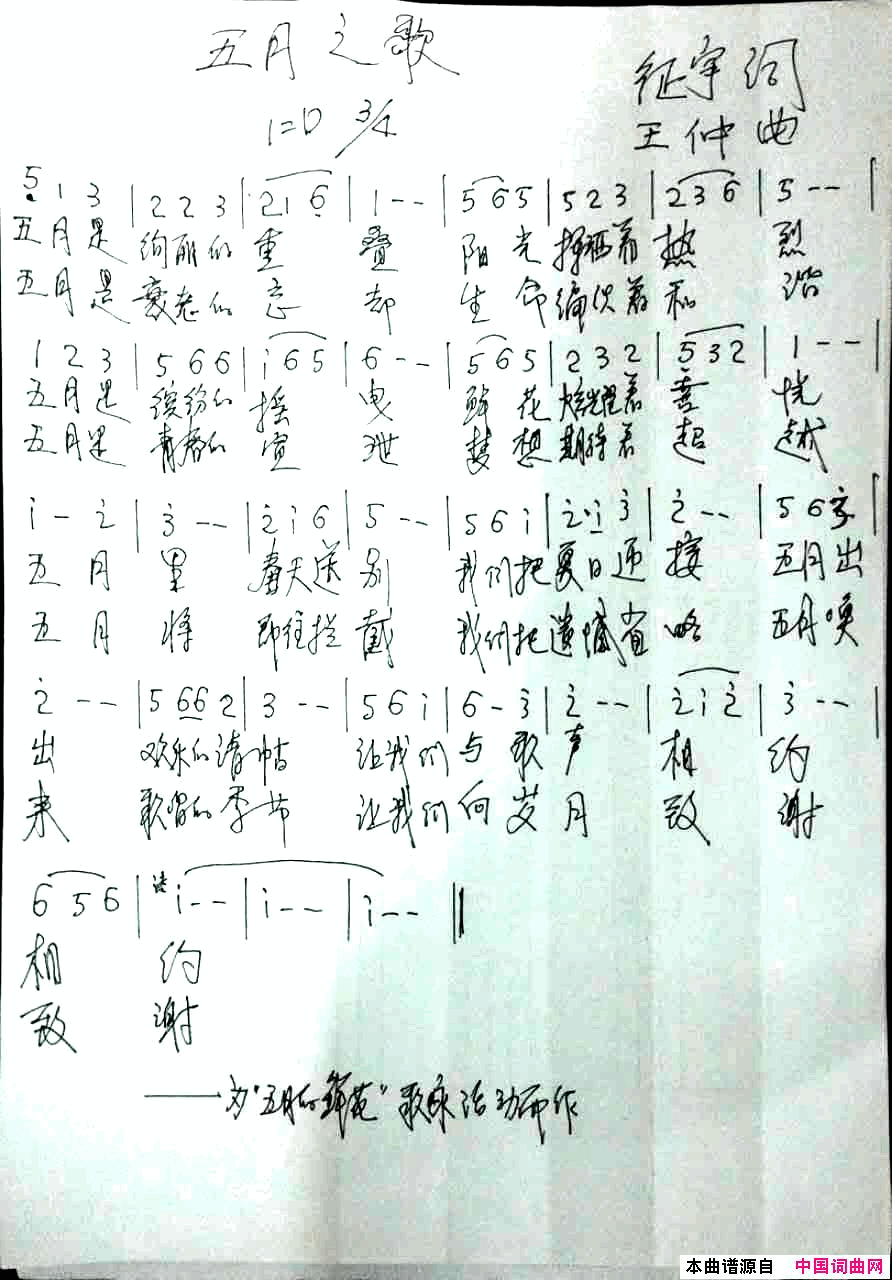 五月之歌
征宇 词
1=D 3/4
王仲 曲
5̣ 1 3 | 2 2 3 | 2 1 6̣ | 1 - - | 5 6 5 | 5 2 3 | 2 3 6 | 5 - - |
五月是 绚丽的 重 叠 阳 光 挥洒着 热 烈
五月是 衰老的 忘 却 生 命 编织着 和 谐
1 2 3 | 5 6 6 | i 6 5 | 6 - - | 5 6 5 | 2 3 2 | 5 3 2 | 1 - - |
五月是 缤纷的 摇 曳 鲜 花 炫耀着 喜 悦
五月是 青春的 宣 泄 梦 想 期待着 超 越
i - 2̇ | 3̇ - - | 2̇ i 6 | 5 - - | 5 6 i | 2̇ · i 3̇ | 2̇ - - | 5 6 3̇ |
五 月 里 春天送 别 我们把 夏日迎 接 五月出
五 月 将 即往拦 截 我们把 遗憾省 略 五月唤
2̇ - - | 5 6 6 2 | 3 - - | 5 6 i | 6 - 3̇ | 2̇ - - | 2̇ i 2̇ | 3̇ - - |
出 欢乐的请 帖 让我们 与 歌 声 相 约
来 歌唱的季 节 让我们 向 岁 月 致 谢
6 5 6 | i - - | i - - | i - - ||
相 约
致 谢
——为"五月的鲜花"歌咏活动而作
本曲谱源自 中国词曲网